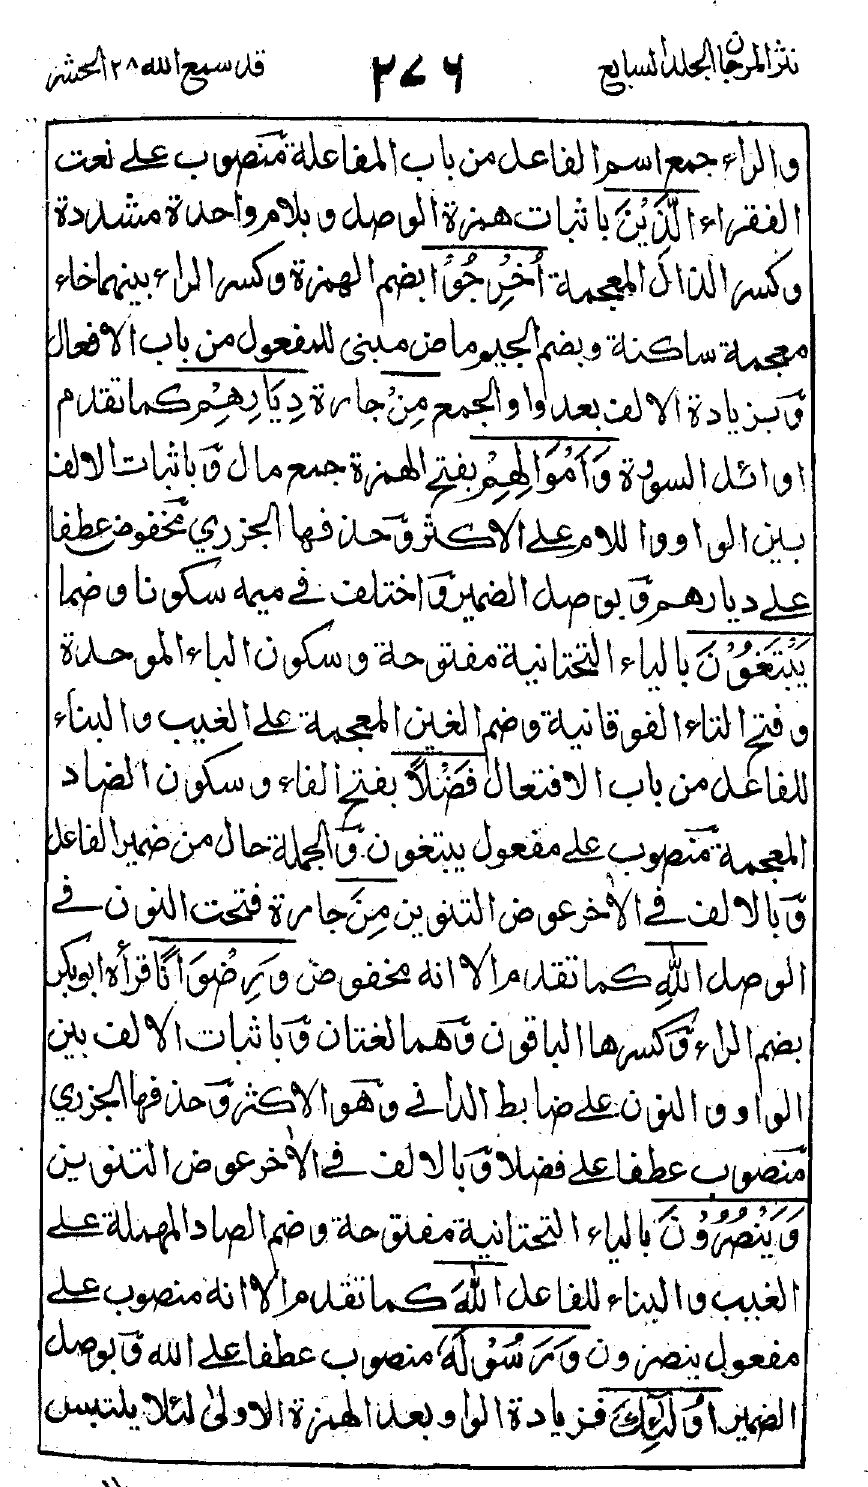 نثر المرجان الجلد السابع ٢٧٦ قد سمع الله ٢٨ الحشر
والراء جمع اسم الفاعل من باب المفاعلة منصوب على نعت
الفقراء الَّذِيْنَ باثبات همزة الوصل وبلام واحدة مشددة
وكسر الذال المعجمة اُخْرِجُوْا بضم الهمزة وكسر الراء بينهما خاء
معجمة ساكنة وبضم الجيم ماض مبنى للمفعول من باب الافعال
وبزيادة الالف بعد واو الجمع مِنْ جارة دِيَارِهِمْ كما تقدم
اوائل السورة وَاَمْوَالِهِمْ بفتح الهمزة جمع مال وباثبات الالف
بين الواو واللام على الاكثر وحذفها الجزري مخفوض عطفا
على ديارهم وبوصل الضمير واختلف في ميمه سكونا وضما
يَبْتَغُوْنَ بالياء التحتانية مفتوحة وسكون الباء الموحدة
وفتح التاء الفوقانية وضم الغين المعجمة على الغيب والبناء
للفاعل من باب الافتعال فَضْلًا بفتح الفاء وسكون الضاد
المعجمة منصوب على مفعول يبتغون والجملة حال من ضمير الفاعل
وبالالف في الاٰخر عوض التنوين مِنَ جارة فتحت النون في
الوصل اللهِ كما تقدم الا انه مخفوض وَرِضْوَانًا قرأه ابو بكر
بضم الراء وكسرها الباقون وهما لغتان وباثبات الالف بين
الواو والنون على ضابط الداني وهو الاكثر وحذفها الجزري
منصوب عطفا على فضلا وبالالف في الاٰخر عوض التنوين
وَيَنْصُرُوْنَ بالياء التحتانية مفتوحة وضم الصاد المهملة على
الغيب والبناء للفاعل اللهَ كما تقدم الا انه منصوب على
مفعول ينصرون وَرَسُوْلَهٗ منصوب عطفا على الله وبوصل
الضمير اُولٰٓئِكَ فزيادة الواو بعد الهمزة الاولىٰ لئلا يلتبس